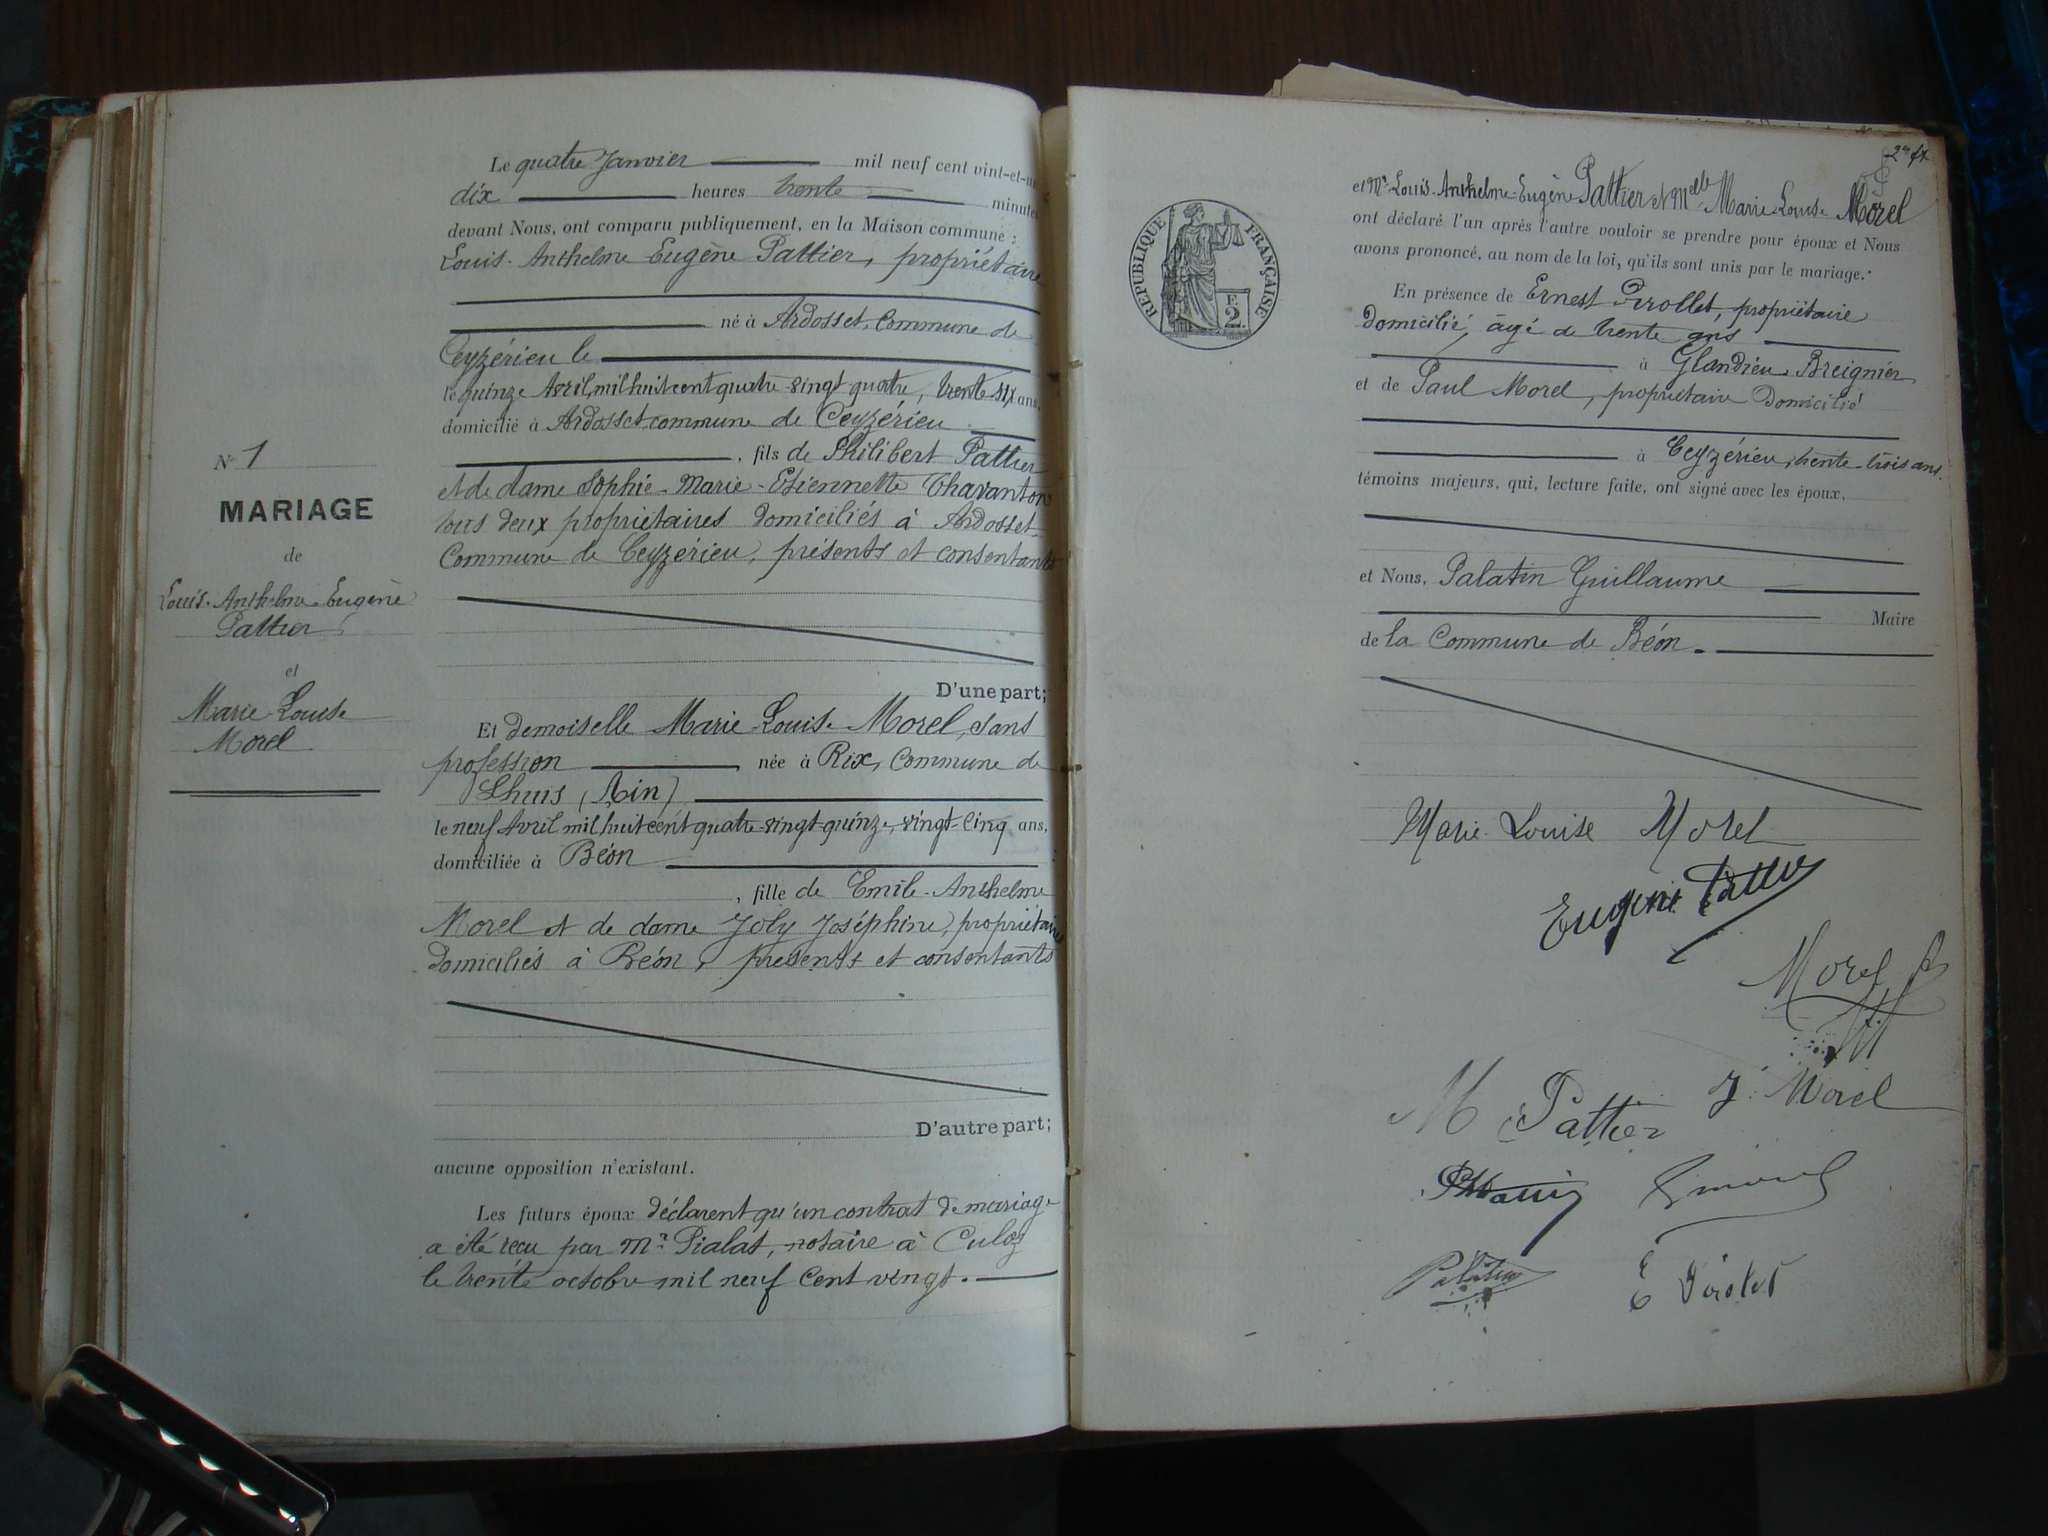 Le quatre Janvier mil neuf cent vint-et-un
dix heures trente minutes
devant Nous, ont comparu publiquement, en la Maison commune :
Louis-Anthelme Eugène Pattier, propriétaire
né à Ardosset, Commune de
Ceyzérieu le
le quinze Avril mil huit cent quatre-vingt quatre, trente six ans,
domicilié à Ardosset commune de Ceyzérieu
, fils de Philibert Pattier
et de dame Sophie-Marie-Etiennette Chavanton
tous deux propriétaires domiciliés à Ardosset
Commune de Ceyzérieu, présents et consentants
N° 1
MARIAGE
de
Louis-Anthelme-Eugène
Pattier
et
Marie-Louise
Morel
D'une part;
Et demoiselle Marie-Louise Morel, sans
profession , née à Rix, Commune de
Lhuis (Ain)
le neuf Avril mil huit cent quatre-vingt-quinze, vingt-cinq ans,
domiciliée à Béon
, fille de Emile-Anthelme
Morel et de dame Joly Joséphine, propriétaires
domiciliés à Béon, présents et consentants
D'autre part;
aucune opposition n'existant.
Les futurs époux déclarent qu'un contrat de mariage
a été reçu par Mr Pialat, notaire à Culoz
le trente octobre mil neuf cent vingt.
RÉPUBLIQUE FRANÇAISE
F.
2.
et Mr Louis-Anthelme-Eugène Pattier et Melle Marie-Louise Morel
ont déclaré l'un après l'autre vouloir se prendre pour époux et Nous
avons prononcé, au nom de la loi, qu'ils sont unis par le mariage.
En présence de Ernest Pirollet, propriétaire
domicilié, âgé de trente ans
à Glandieu-Breignier
et de Paul Morel, propriétaire domicilié
à Ceyzérieu, trente-trois ans.
témoins majeurs, qui, lecture faite, ont signé avec les époux,
et Nous, Palatin Guillaume
Maire
de la Commune de Béon.
Marie-Louise Morel
Eugène Pattier
Morel
J. Morel
M Pattier
Palatin
E Pirolet